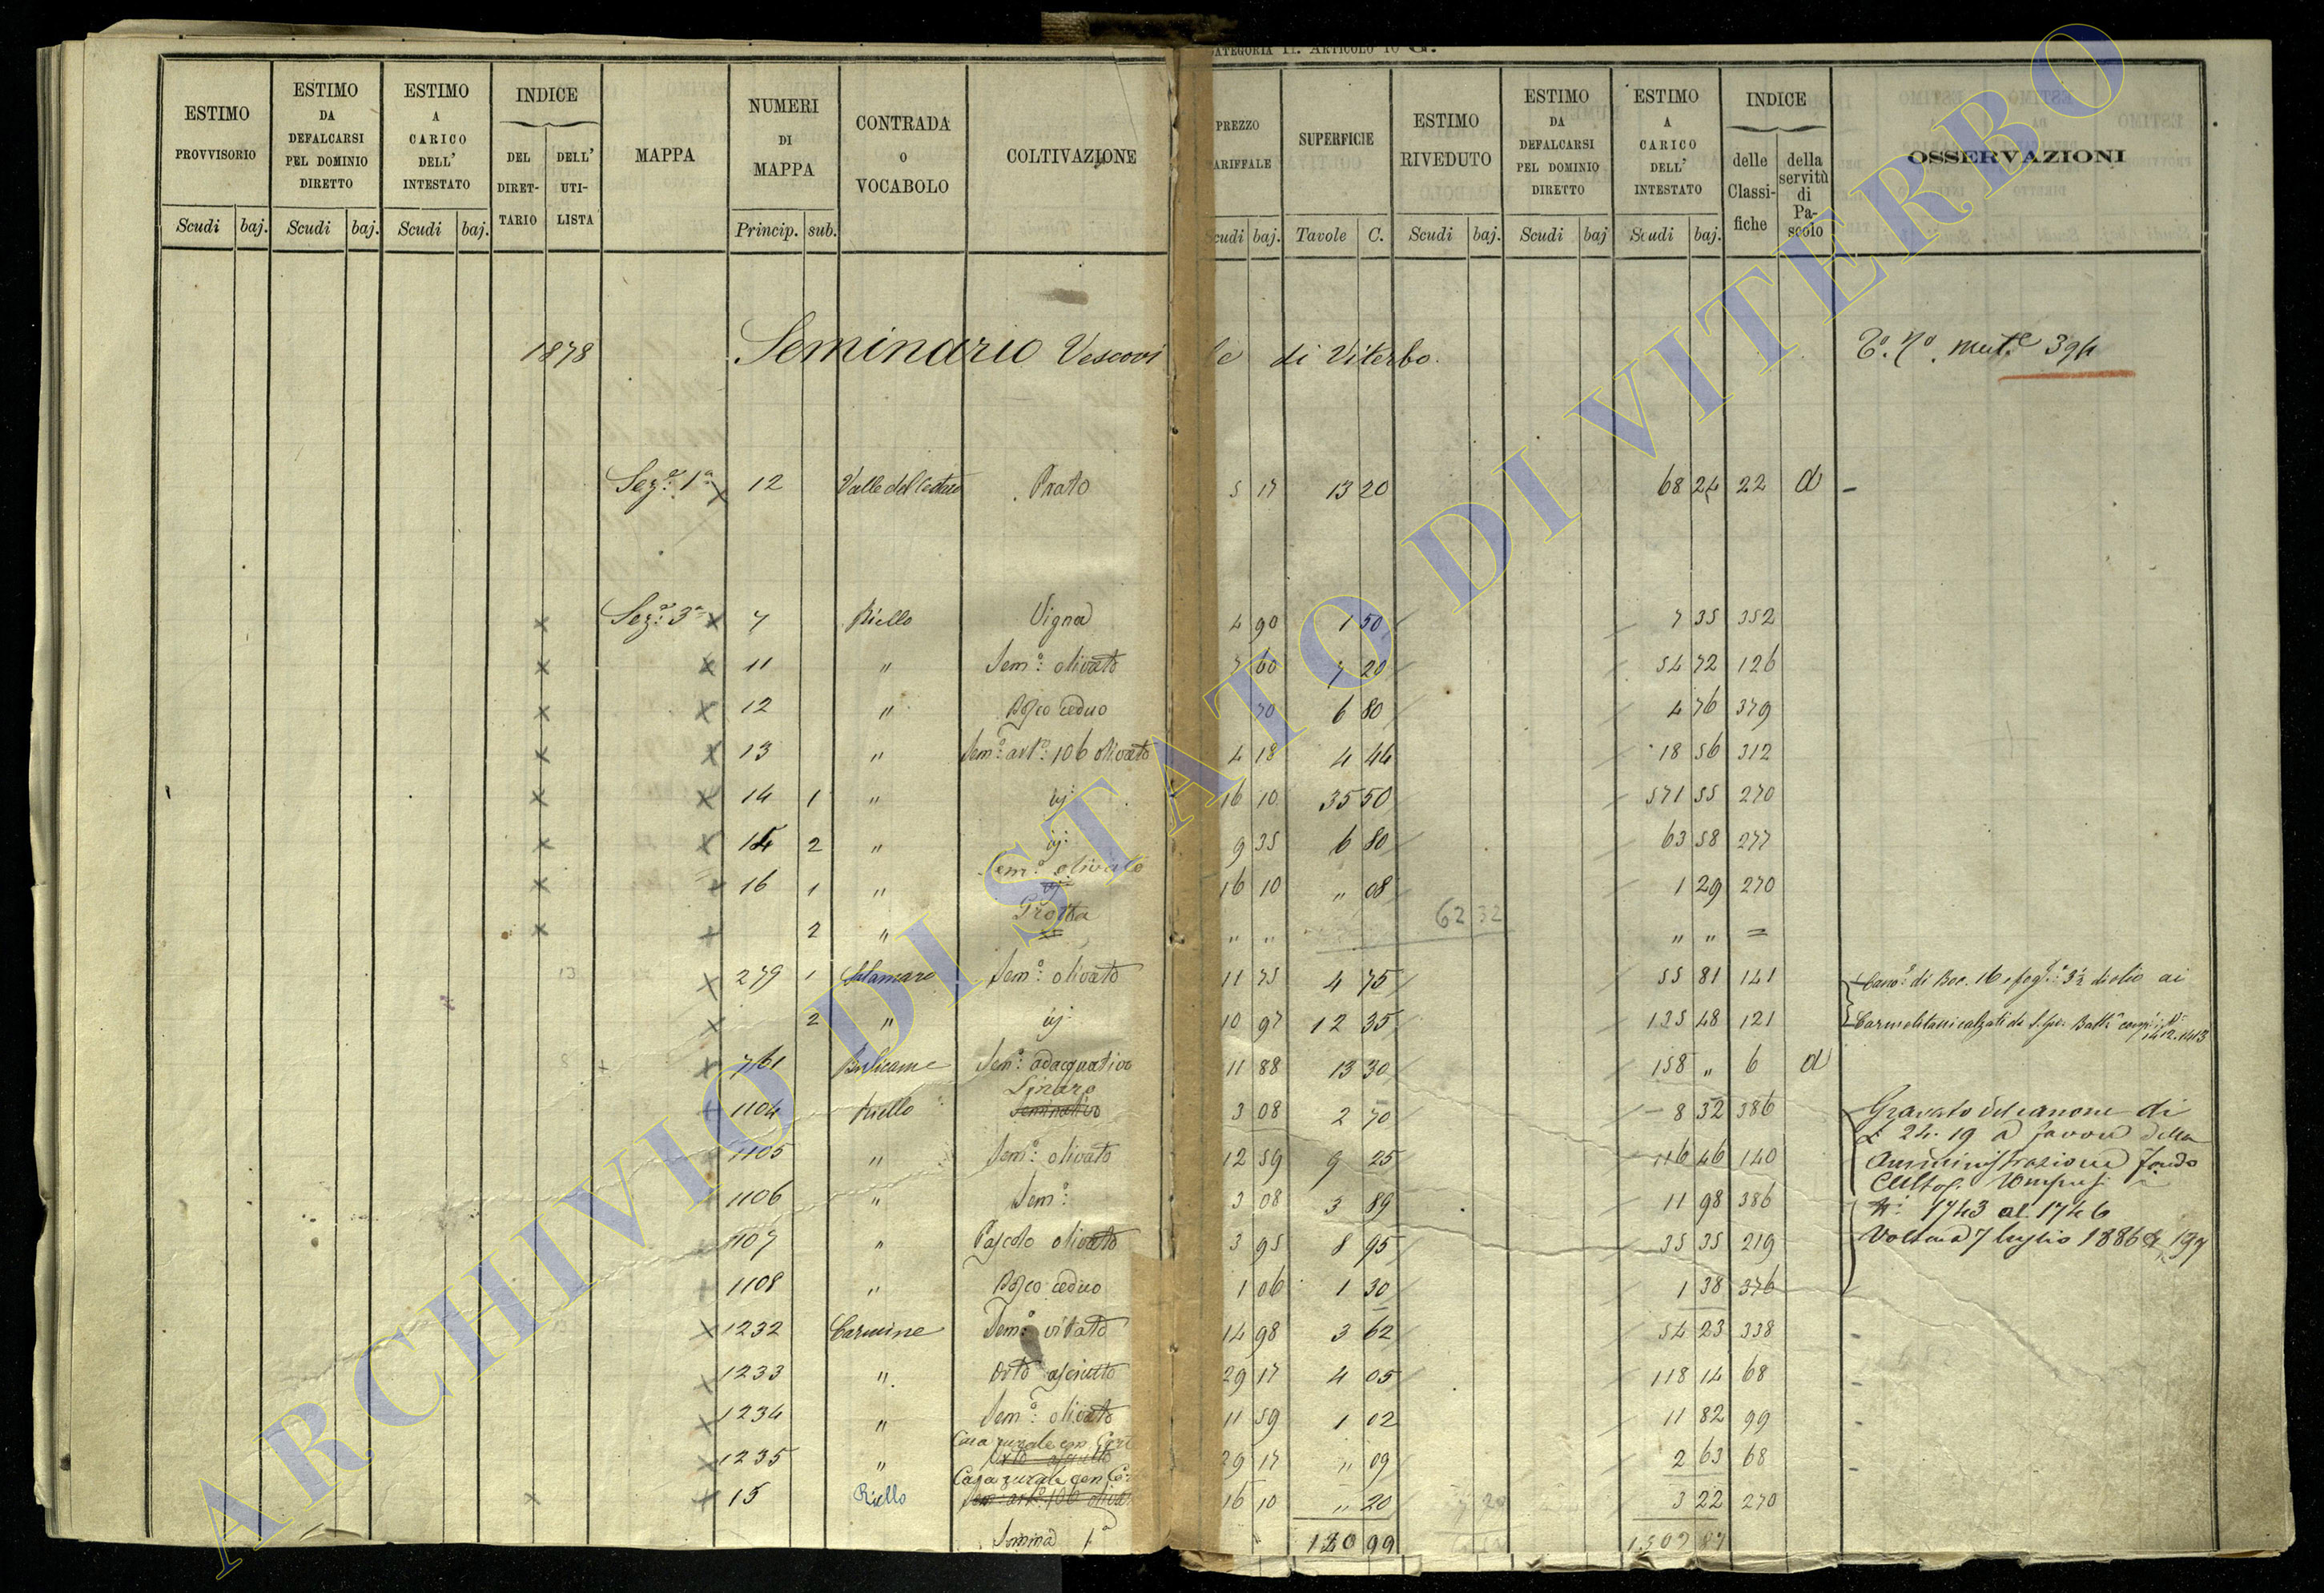 CATEGORIA II. ARTICOLO 10 G.
ESTIMO PROVVISORIO
ESTIMO DA DEFALCARSI PEL DOMINIO DIRETTO
ESTIMO A CARICO DELL' INTESTATO
INDICE
DEL DIRETTARIO
DELL' UTILISTA
MAPPA
NUMERI DI MAPPA
CONTRADA O VOCABOLO
COLTIVAZIONE
PREZZO TARIFFALE
SUPERFICIE
ESTIMO RIVEDUTO
ESTIMO DA DEFALCARSI PEL DOMINIO DIRETTO
ESTIMO A CARICO DELL' INTESTATO
INDICE
delle Classifiche
della servitù di Pascolo
OSSERVAZIONI
Scudi baj. Scudi baj. Scudi baj. Princip. sub. Scudi baj. Tavole C. Scudi baj. Scudi baj Scudi baj.
1878 Seminario Vescovile di Viterbo. 394
Sez.e 1a x 12 Prato 5 17 13 20 68 24 22 a
x Sez.e 3a x 7 Riello Vigna 4 90 1 50 7 35 352
x x 11 " Sem.o olivato 7 60 7 20 54 72 126
x x 12 " Bosco ceduo 70 6 80 4 76 379
x x 13 " Sem.o art.o 106 olivato 4 18 4 44 18 56 312
x x 14 1 " 16 10 35 50 571 55 270
x x 14 2 " 9 35 6 80 63 58 277
x + 16 1 " Sem.o olivato 16 10 " 08 1 29 270
x + 2 " Grotta " " 62 32 " " =
13 x 279 1 Sem.o olivato 11 75 4 75 55 81 141
x 2 " 10 97 12 35 135 48 121
x 761 Bulicame Sem.o adacquativo 11 88 13 30 158 " 6 a
+ 1104 Riello seminativo 3 08 2 70 8 32 386 Gravato del canone di
1105 " Sem.o olivato 12 59 9 25 116 46 140 £ 24.19 a favore della
Amministrazione fondo
1106 " Sem.o 3 08 3 89 11 98 386
1743 al 1746
1107 " Pascolo olivato 3 95 8 95 35 35 219 Voltura 7 luglio 1886 197
1108 " Bosco ceduo 1 06 1 30 1 38 376
x 1232 Carmine Sem.o vitato 14 98 3 62 54 23 338
x 1233 " Orto asciutto 29 17 4 05 118 14 68
x 1234 " Sem.o olivato 11 59 1 02 11 82 99
Casa rurale con Corte
x 1235 " Orto asciutto 29 17 " 09 2 63 68
Casa rurale con
x + 15 Riello Sem. art. 106 16 10 " 20 3 22 270
Somma 1a 120 99
ARCHIVIO DI STATO DI VITERBO